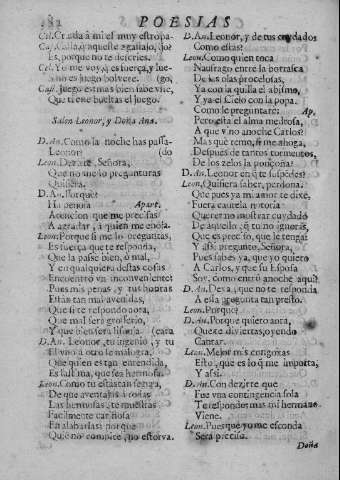 POESIAS
Salen Leonor, y Doña Ana.
D. An. Como la noche has passa-
Leonor? (do
Leon. De arte, Señora,
Que no me lo preguntaras
Quisiera.
D. An. Porque?
Ha penosa Apart.
Atencion que me precisas
A agradar, a quien me enoja.
Leon. Porque si me lo preguntas,
Es fuerça que te responda,
Que la passe bien, ò mal,
Y en qualquiera destas cosas
Encuentro un inconveniente:
Pues mis penas, y tus honras
Están tan mal avenidas,
Que si te respondo aora,
Que mal será grosseria,
Y que bien será lisonja. (cara
D. An. Leonor, tu ingenio, y tu
El uno à otro se malogra,
Que quien es tan entendida,
Es lastima, que sea hermosa.
Leon. Como tu estás tan segura,
De que aventajas à todas
Las hermosas, te muestras
Facilmente cariñosa
En alabarlas; porque
Quien no compite, no estorva.
D. An. Leonor, y de tus cuydados
Como estás?
Leon. Como quien toca
Naufrago entre la borrasca
De las olas procelosas,
Ya con la quilla el abismo,
Y ya el Cielo con la popa.
Como le preguntarè: Ap.
Pero està el alma medrosa,
A que vino anoche Carlos?
Mas què temo, si me ahoga,
Después de tantos tormentos,
De los zelos la ponçoña?
D. An. Leonor en q te suspēdes?
Leon. Quisiera saber, perdona.
Que pues ya mi amor te dixe,
Fuera cautela notoria
Querer no mostrar cuydado
De aquello, q tu no ignoras,
Que es preciso, que le tenga:
Y assi pregunto, Señora,
Pues sabes ya, que yo quiero
A Carlos, y que su Esposa
Soy. Como entrò anoche aqui?
D. An. Dexa, que no te responda
A essa pregunta tan presto.
Leon. Porque?
D. An. Porque quiero aora,
Que te diviertas, oyendo
Cantar.
Leon. Mejor mis congoxas
Esto, que es lo q me importa,
Y assi.
D. An. Con dezirte que
Fue una contingencia sola
Te respondo: mas mi hermano
Viene.
Leon. Pues que yo me esconda
Será preciso.
Doña